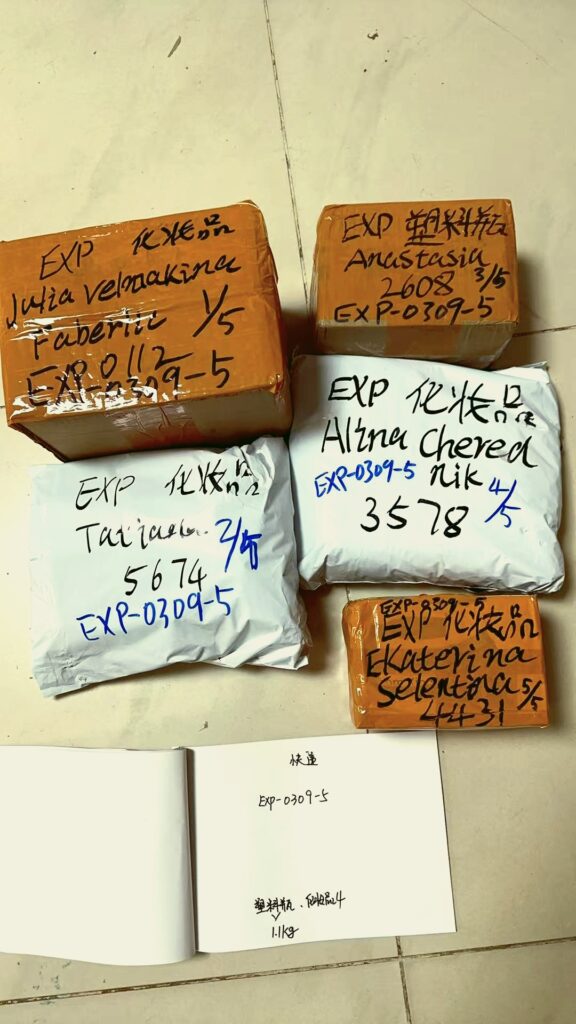 EXP 化妆品
Julia Velmakina
Faberlic 1/5
EXP 0112
EXP-0309-5
EXP 塑料瓶
Anastasia
2608 3/5
EXP-0309-5
EXP 化妆品
Tatiana 2/5
5674
EXP-0309-5
EXP 化妆品
Alina Chered
EXP-0309-5 nik 4/5
3578
EXP-0309-5
EXP 化妆品
Ekaterina
Selentina 5/5
4431
快递
EXP-0309-5
塑料瓶、化妆品4
1.1kg